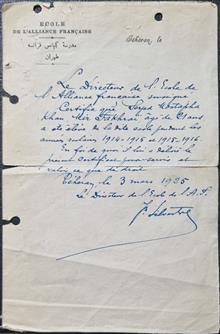 ECOLE
DE L'ALLIANCE FRANÇAISE
طهران
Téhéran, le
Le Directeur de l'Ecole de
l'Alliance française soussigné
Certifie que Seyed Mostapha
Khan agé de 21 ans
a été élève de la dite école pendant les
années scolaires 1914-1915 et 1915-1916.
En foi de quoi il lui a délivré le
présent certificat pour servir et
valoir ce que de droit.
Téhéran, le 3 mars 1925
Le Directeur de l'Ecole de l'A.F.